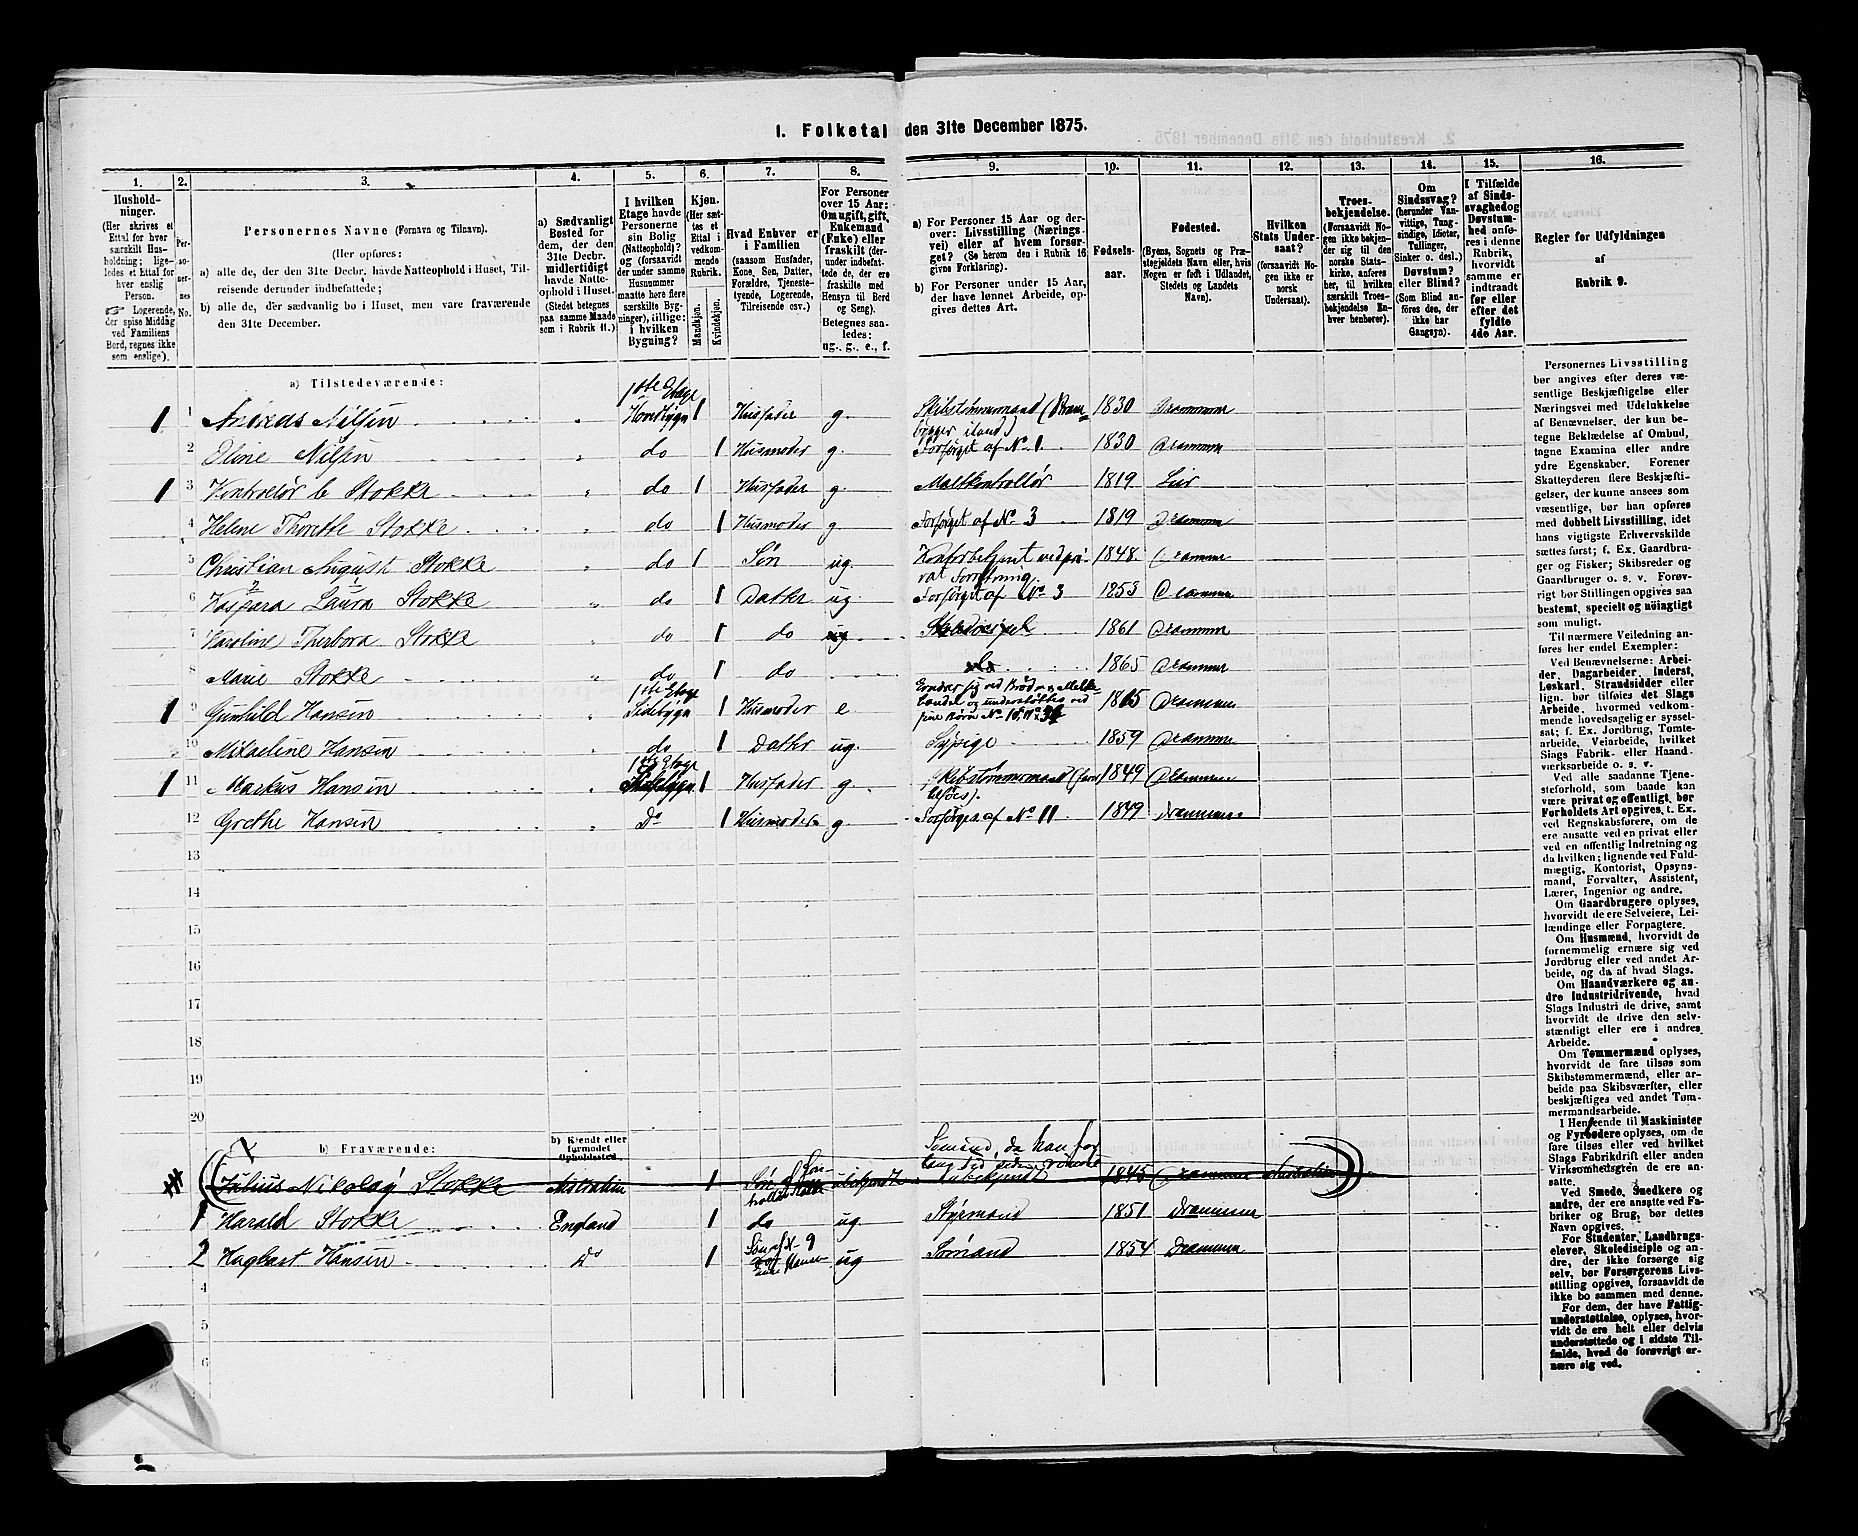 1. Folketal den 31te December 1875.
1. 2. 3. 4. 5. 6. 7. 8. 9. 10. 11. 12. 13. 14. 15. 16.
Hushold-
ninger.
(Her skrives et
Ettal for hver
særskilt Hus-
holdning; lige-
ledes et Ettal for
hver enslig
Person.
Logerende,
der spise Middag
ved Familiens
Bord, regnes ikke
som enslige).
Per-
so-
ner-
nes
No.
Personernes Navne (Fornavn og Tilnavn).
(Her opføres:
a) alle de, der den 31te Decbr. havde Natteophold i Huset, Til-
reisende derunder indbefattede;
b) alle de, der sædvanlig bo i Huset, men vare fraværende
den 31te December.
a) Sædvanligt
Bosted for
dem, der den
31te Decbr.
midlertidigt
havde Natte-
ophold i Huset.
(Stedet betegnes
paa samme Maade
som i Rubrik 11.)
I hvilken
Etage havde
Personerne
sin Bolig
(Natteophold)?
og (forsaavidt
der under samme
Husnummer
maatte here flere
særskilte Byg-
ninger), tillige:
i hvilken
Bygning?
Kjøn.
(Her sæt-
tes et
Ettal i
vedkom-
mende
Rubrik.
Mandkjøn.
Kvindekjøn.
Hvad Enhver er
i Familien
(saasom Husfader,
Kone, Søn, Datter,
Forældre, Tjeneste-
tyende, Logerende,
Tilreisende osv.)
For Personer
over 15 Aar:
Om ugift, gift,
Enkemand
(Enke) eller
fraskilt (der-
under indbefat-
tede de, der ere
fraskilte med
Hensyn til Bord
og Seng).
Betegnes saa-
ledes:
ug., g., e., f.
a) For Personer 15 Aar og der-
over: Livsstilling (Nærings-
vei) eller af hvem forsør-
get? (Se herom den i Rubrik 16
givne Forklaring).
b) For Personer under 15 Aar,
der have lønnet Arbeide, op-
gives dettes Art.
Fødsels-
aar.
Fødested.
(Byens, Sognets og Præ-
stegjeldets Navn eller, hvis
Nogen er født i Udlandet,
Stedets og Landets
Navn).
Hvilken
Stats Under-
saat?
(forsaavidt No-
gen ikke er
norsk
Undersaat).
Troes-
bekjendelse.
(Forsaavidt No-
gen ikke bekjen-
der sig til den
norske Stats-
kirke, anføres
her, til hvilken
særskilt Troes-
bekjendelse En-
hver henhører).
Om
Sindssvag?
(herunder Van-
vittige, Tung-
sindige, Idioter,
Tullinger,
Sinker o. desl.)
Døvstum?
eller Blind?
(Som Blind an-
føres den, der
ikke har
Gangsyn).
I Tilfælde
af Sinds-
svaghed og
Døvstum-
hed anfø-
res i denne
Rubrik,
hvorvidt
samme er
indtraadt
før eller
efter det
fyldte
4de Aar.
Regler før Udfyldningen
af
Rubrik 9.
a) Tilstedeværende:
1 1 Nilsen 1ste Etage Hovedbygn 1 Husfader g. Skibstømmermand 1830 Drammen
2 Oline Nilsen do 1 Husmoder g. Forsørget af No. 1 1830 Drammen
1 3 Kontrollør Stokke do 1 Husfader g. Maltkontrollør 1819 Lier
4 Helene Thorethe Stokke do 1 Husmoder g. Forsørget af No. 3 1819 Drammen
5 Christian August Stokke do 1 Søn ug. Kontorbetjent ved pri-
vat Forretning. 1848. Drammen
6 Kaspara Laura Stokke do 1 Datter ug Forsørget af No. 3 1853 Drammen
7 Karoline Therbora Stokke do 1 do ug 1861 Drammen
8 Marie Stokke do 1 do do 1865 Drammen
1 9 Gunhild Hansen 1ste Etage Sidebygn 1 Husmoder e Ernærer sig ved Brød og Melke-
handel og understøttes ved Drammen
10 Mikaeline Hansen do 1 Datter ug. Sypige 1859 Drammen
1 11 Markus Hansen 1ste Etage 1 Husfader g Skibstømmermand 1849 Drammen
12 Grethe Hansen Do 1 Husmoder g Forsørges af No 11 1849 Drammen
13
14
15
16
17
18
19
20
b) Fraværende:
b) Kjendt eller
formodet
Opholdssted.
Sømand, da han for
lang Tid siden
Julius Nikolay Stokke Australien 1 Søn 1845 Drammen Australien
1 Harald Stokke England 1 do ug Styrmand 1851 Drammen
2 Hagbart Hansen Do 1 Søn af No 9 Hansen ug Sømand 1854 Drammen
4
5
6
Personernes Livsstilling
bør angives efter deres væ-
sentlige Beskjæftigelse eller
Næringsvei med Udelukkelse
af Benævnelser, der kun be-
tegne Beklædelse af Ombud,
tagne Examina eller andre
ydre Egenskaber. Forener
Skatteyderen flere Beskjæfti-
gelser, der kunne ansees som
væsentlige, bør han opføres
med dobbelt Livsstilling, idet
hans vigtigste Erhvervskilde
sættes først; f. Ex. Gaardbru-
ger og Fisker; Skibsreder og
Gaardbruger o. s. v. Forøv-
rigt bør Stillingen opgives saa
bestemt, specielt og nøiagtigt
som muligt.
Til nærmere Veiledning an-
føres her endel Exempler:
Ved Benævnelserne: Arbei-
der, Dagarbeider, Inderst,
Løskarl, Strandsidder eller
lign. bør tilføies det Slags
Arbeide, hvormed vedkom-
mende hovedsagelig er syssel-
sat; f. Ex. Jordbrug, Tomte-
arbeide, Veiarbeide, hvilken
Slags Fabrik- eller Haand-
værksarbeide o. s. v.
Ved alle saadanne Tjene-
steforhold, som baade kan
være privat og offentligt, bør
Forholdets Art opgives, t. Ex.
ved Regnskabsførere, om de
ere ansatte ved en privat eller
ved en offentlig Indretning og
da hvilken; lignende ved Fuld-
mægtig, Kontorist, Opsyns-
mand, Forvalter, Assistent,
Lærer, Ingeniør og andre.
Om Gaardbrugere oplyses,
hvorvidt de ere Selveiere, Lei-
lændinge eller Forpagtere.
Om Husmænd, hvorvidt de
fornemmelig ernære sig ved
Jordbrug eller ved andet Ar-
beide, og da af hvad Slags.
Om Haandværkere og an-
dre Industridrivende, hvad
Slags Industri de drive, samt
hvorvidt de drive den selv-
stændigt eller ere i andres
Arbeide.
Om Tømmermænd oplyses,
hvorvidt de fare tilsøs som
Skibstømmermænd, eller ar-
beide paa Skibsværfter, eller
beskjæftiges ved andet Tøm-
mermandsarbeide.
I Henseende til Maskinister
og Fyrbødere oplyses, om de
fare tilsøs eller ved hvilket
Slags Fabrikdrift eller anden
Virksomhedsgren de ere an-
satte.
Ved Smede, Snedkere og
andre, der ere ansatte ved Fa-
briker og Brug, bør dettes
Navn opgives.
For Studenter, Landbrugs-
elever, Skoledisciple og an-
dre, der ikke forsørge sig
selv, bør Forsørgerens Livs-
stilling opgives, forsaavidt de
ikke bo sammen med denne.
For dem, der have Fattig-
understøttelse, oplyses, hvor-
vidt de ere helt eller delvis
understøttede og i sidste Til-
fælde, hvad de forøvrigt er-
nære sig ved.